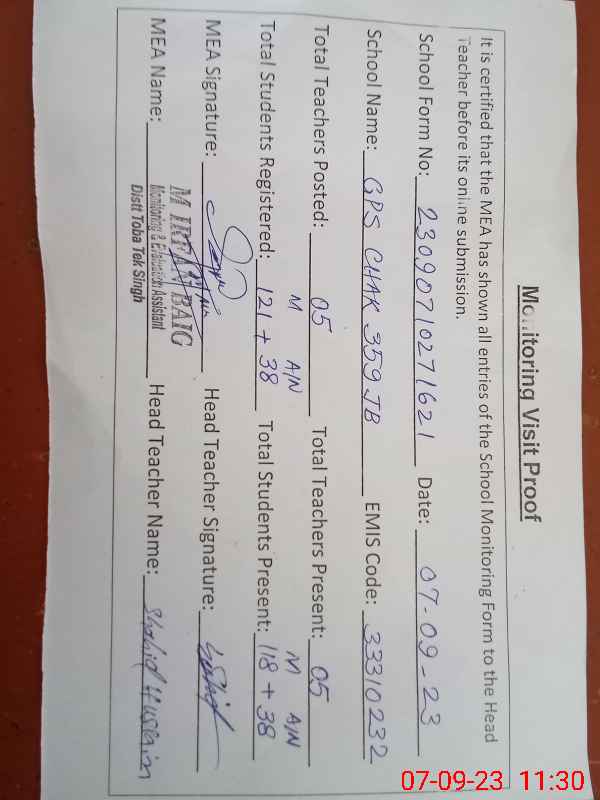 Monitoring Visit Proof
It is certified that the MEA has shown all entries of the School Monitoring Form to the Head
Teacher before its online submission.
School Form No: 23090710271621 Date: 07-09-23
School Name: GPS CHAK 359 JB EMIS Code: 33310232
Total Teachers Posted: 05 Total Teachers Present: 05
M A/N M A/N
Total Students Registered: 121 + 38 Total Students Present: 118 + 38
MEA Signature: Head Teacher Signature:
M IRFAN BAIG
MEA Name: Monitoring & Evaluation Assistant Head Teacher Name: Shahid Hussain
Distt Toba Tek Singh
07-09-23 11:30